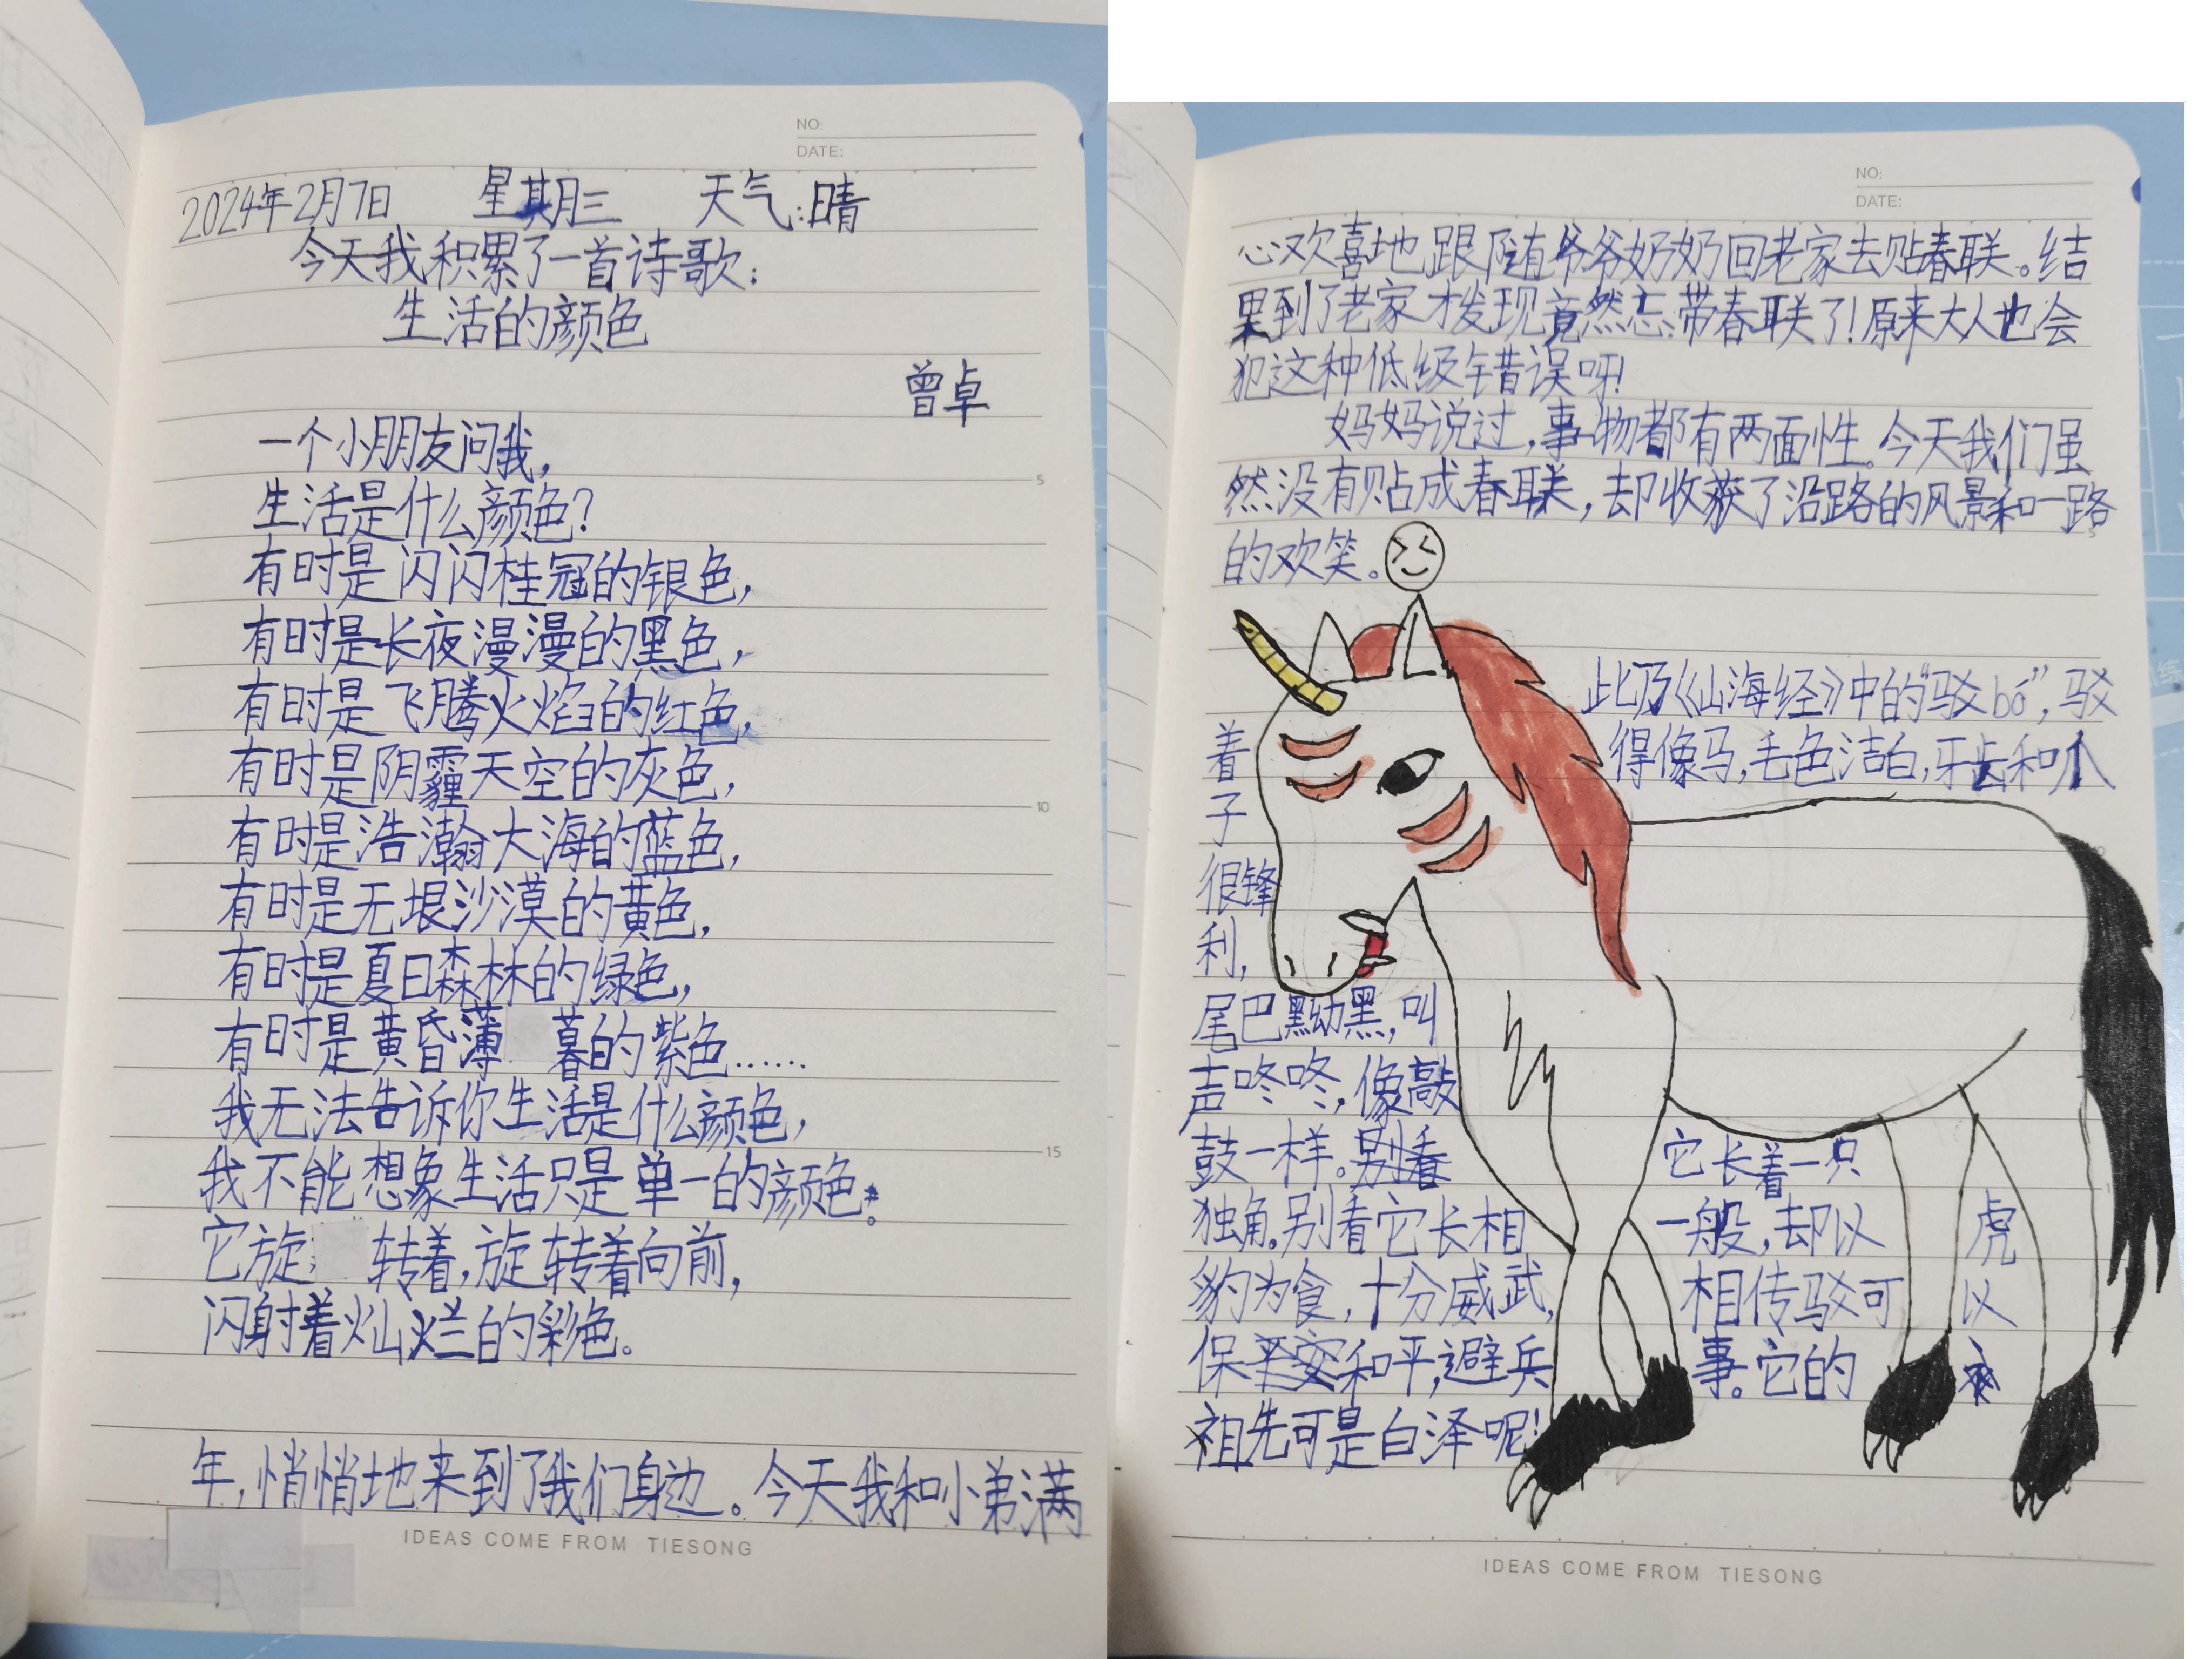 NO:
DATE:
2024年2月7日 星期三 天气:晴
今天我积累了一首诗歌:
生活的颜色
曾卓
一个小朋友问我,
生活是什么颜色?
有时是闪闪桂冠的银色,
有时是长夜漫漫的黑色,
有时是飞腾火焰的红色,
有时是阴霾天空的灰色,
有时是浩瀚大海的蓝色,
有时是无垠沙漠的黄色,
有时是夏日森林的绿色,
有时是黄昏薄暮的紫色……
我无法告诉你生活是什么颜色,
我不能想象生活只是单一的颜色。
它旋转着,旋转着向前,
闪射着灿烂的彩色。
年,悄悄地来到了我们身边。今天我和小弟满
IDEAS COME FROM TIESONG
5
10
15
NO:
DATE:
心欢喜地跟随爷爷奶奶回老家去贴春联。结
果到了老家才发现竟然忘带春联了!原来大人也会
犯这种低级错误呀!
妈妈说过,事物都有两面性。今天我们虽
然没有贴成春联,却收获了沿路的风景和一路
的欢笑。
此乃《山海经》中的“驳bó”,驳
着 得像马,毛色洁白,牙齿和爪
子
很锋
利,
尾巴黝黑,叫
声咚咚,像敲
鼓一样。别看 它长着一只
独角。别看它长相 一般,却以 虎
豹为食,十分威武, 相传驳可 以
保和平,避兵 事。它的
祖先可是白泽呢!
IDEAS COME FROM TIESONG